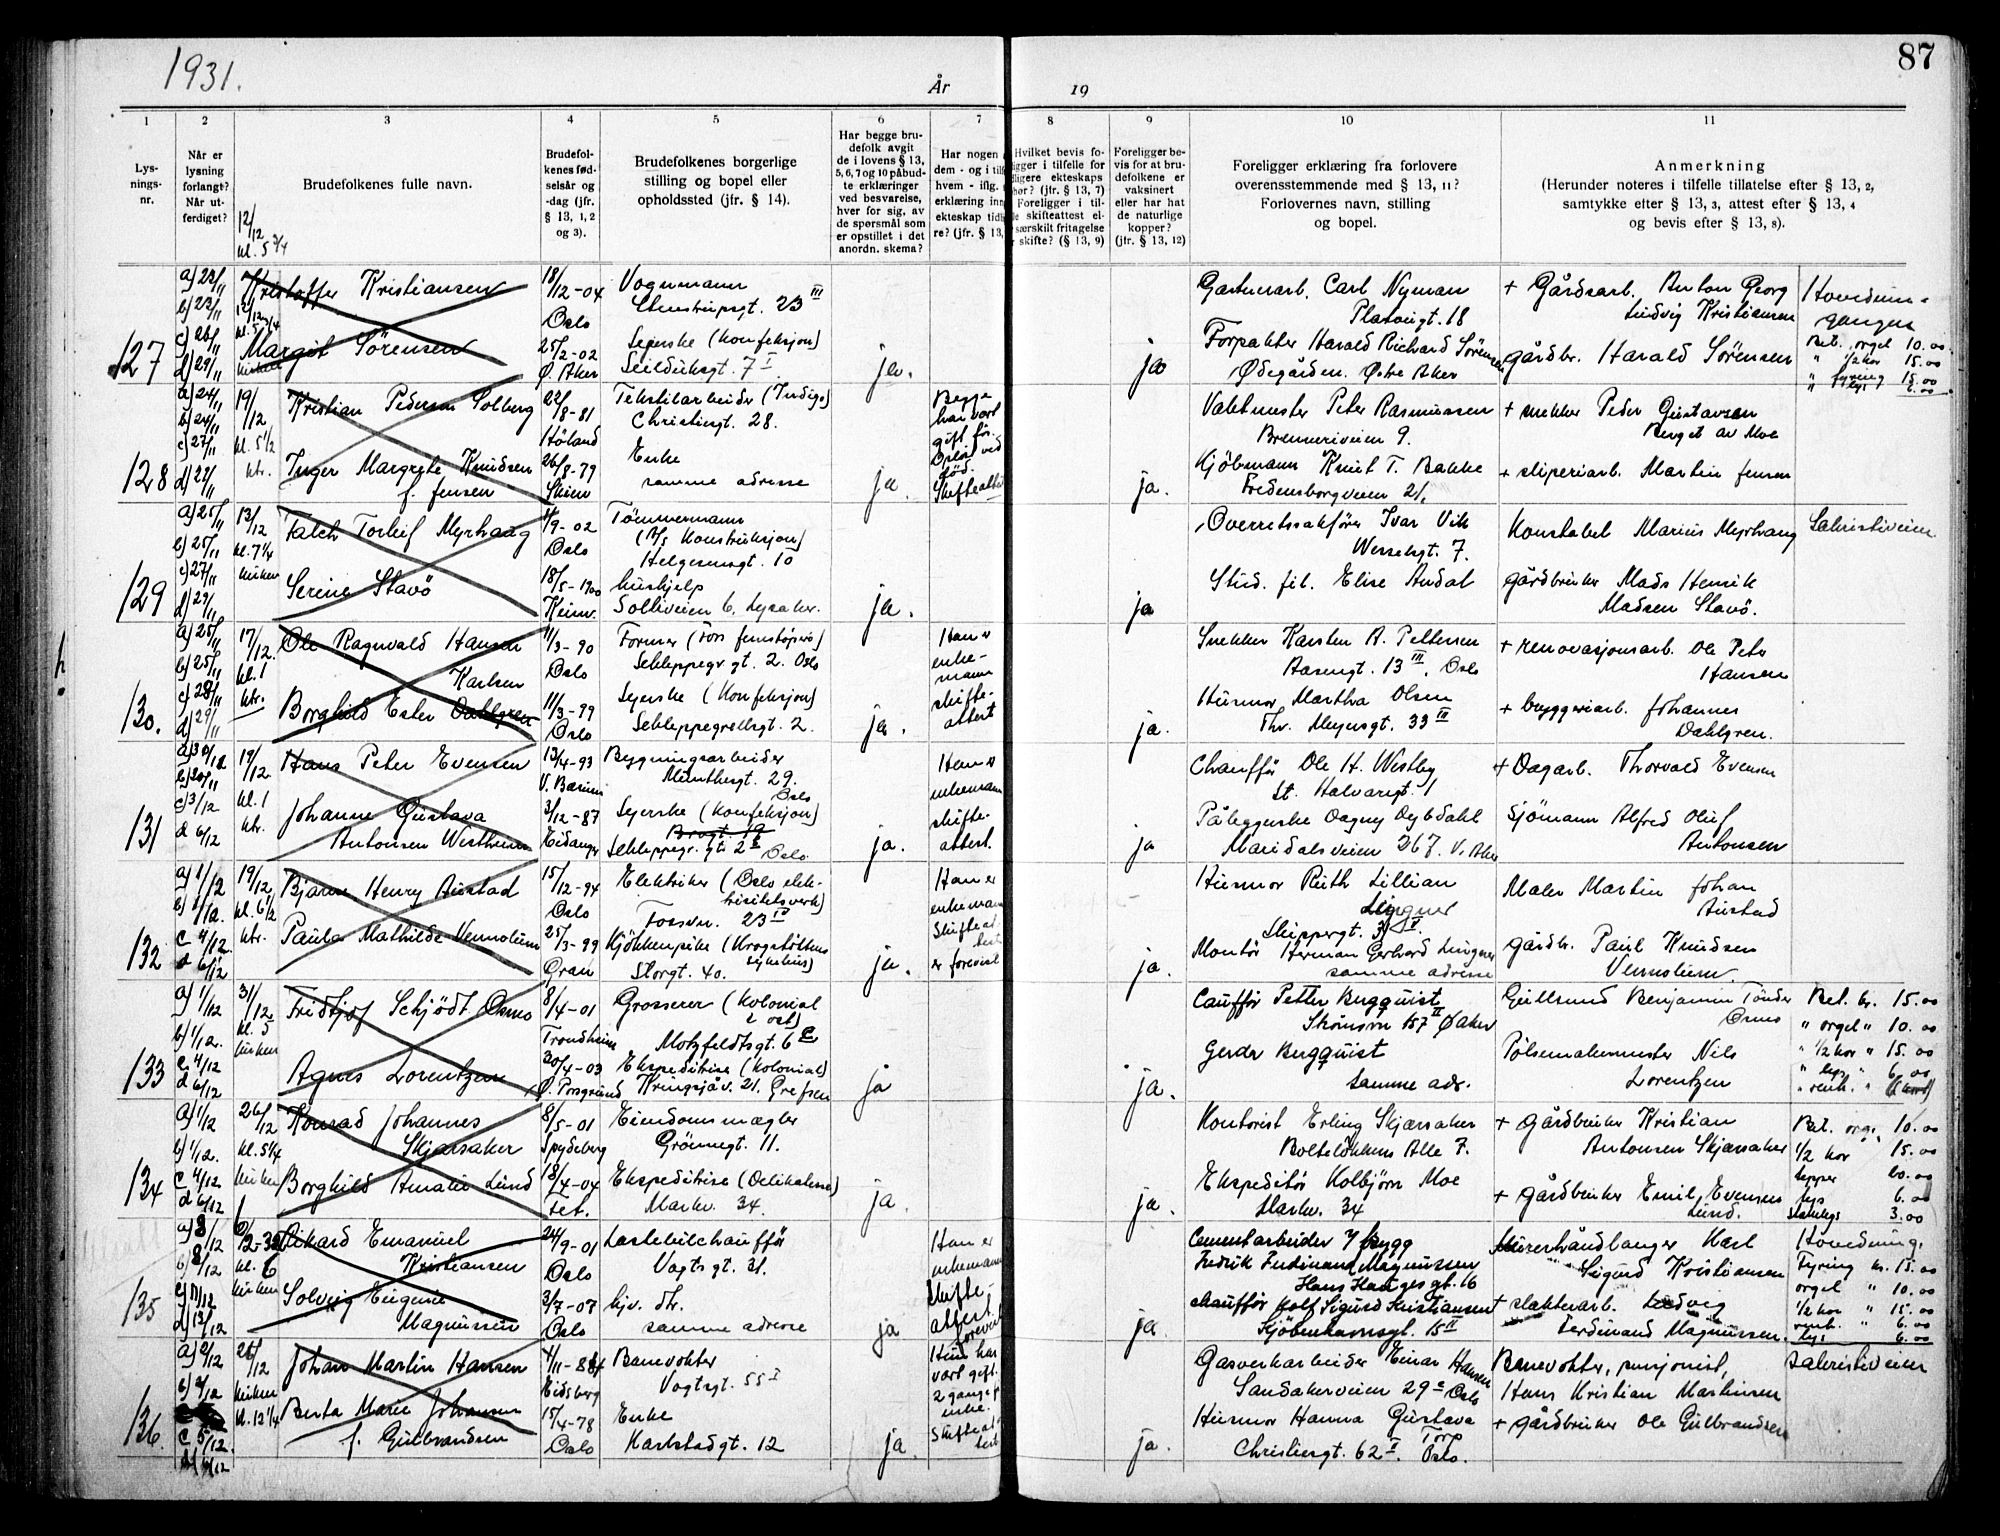 1931.
År
19
87
1
2
3
4
5
6
7
8
9
10
11
Lys-
nings-
nr.
Når er
lysning
forlangt?
Når ut-
ferdiget?
Brudefolkenes fulle navn.
12/12
kl. 5 3/4
Brudefol-
kenes fød-
selsår og
-dag (jfr.
§ 13, 1, 2
og 3).
Brudefolkenes borgerlige
stilling og bopel eller
opholdssted (jfr. § 14).
Har begge bru-
defolk avgit
de i lovens § 13,
5, 6, 7 og 10 påbud-
te erklæringer
ved besvarelse,
hver for sig, av
de spørsmål som
er opstillet i det
anordn. skema?
Har nogen
dem - og i tilf
hvem - iflg.
erklæring inn
ekteskap tidl
re? (jfr. § 13,
Hvilket bevis fo-
ligger i tilfelle for
dligere ekteskaps
hør? (jfr. § 13, 7)
Foreligger i til-
le skifteattest el-
særskilt fritagelse
r skifte? (§ 13, 9)
Foreligger be-
vis for at bru-
defolkene er
vaksinert
eller har hat
de naturlige
kopper?
(jfr. § 13, 12)
Foreligger erklæring fra forlovere
overensstemmende med § 13, 11?
Forlovernes navn, stilling
og bopel.
Anmerkning
(Herunder noteres i tilfelle tillatelse efter § 13, 2,
samtykke efter § 13, 3, attest efter § 13, 4
og bevis efter § 13, 8).
127
a) 23/11
b) 23/11
c) 26/11
d) 29/11
Kristoffer Kristiansen
Margit Sørensen
18/12-04
Oslo
25/2-02
Ø. Aker
Vognmann
Stenstrupsgt. 23 III
Syerske (Konfeksjon)
Seilduksgt. 7 I
ja.
ja
Gartnerarb. Carl Nyman
Platousgt. 18
Forpakter Harald Richard Sørensen
Ødegården. Østre Aker
+ Gårdsarb. Anton Georg
Ludvig Kristiansen
gårdbr. Harald Sørensen
Hovedum-
gangen
Bet. orgel 10.00
" 1/2 kor 15.00
" fyring 15.00
" lys 6.00
128
a) 24/11
b) 24/11
c) 27/11
d) 29/11
19/12
kl. 5 1/2
ktr.
Kristian Pedersen Solberg
Inger Margrete Knudsen
f. Jensen
22/8-81
Höland
26/8-79
Skien
Tekstilarbeider (Indigo)
Christiesgt. 28.
Enke
samme adresse
ja.
Begge
har vært
gift før.
Opløst ved
død.
Skifteattest
ja.
Vaktmester Peter Rasmussen
Brenneriveien 9.
Kjøbmann Knut T. Bakke
Fredensborgveien 21.
+ snekker Peder Gustavsen
Berget av Moe
+ sliperiarb. Martin Jensen
129
a) 25/11
b) 25/11
c) 27/11
d) 29/11
13/12
kl. 7 1/4
kirken
Falch Torleif Myrhaug
Serine Stavö
1/9-02
Oslo
18/5-1900
Tömmermann
(A/s Konstruksjon)
Helgesensgt. 10
hushjelp
Solliveien 6, Lysaker.
ja.
ja
Overretssakfører Ivar Vik
Wesselsgt. 7.
Stud. fil. Elise Andal
Konstabel Marius Myrhaug
gårdbruker Mads Henrik
Madsen Stavö.
Sakristiveien
130.
a) 25/11
b) 25/11
c) 28/11
d) 29/11
17/12.
kl. 1
ktr.
Ole Ragnvald Hansen
Karlsen
Borghild Ester Dahlgren
11/3-90
Oslo
11/3-99
Oslo
Former
Schleppegr. gt. 2. Oslo
Syerske (Konfeksjon)
Schleppegrellsgt. 2.
ja.
Han er
enke-
mann
skifte-
attest
ja.
Snekker Karsten A. Pettersen
Aasengt. 13 III, Oslo
Husmor Martha Olsen
Thv. Meyersgt. 33 III
+ renovasjonsarb. Ole Peter
Hansen
+ bryggeriarb. Johannes
Dahlgren.
131
a) 30/11
b) 30/11
c) 3/12
d 6/12
19/12
kl. 1
ktr.
Hans Peter Evensen
Johanne Gustava
Antonsen Westheim
13/4-93
V. Bærum
3/12-87
Eidanger
Bygningsarbeider
Munthesgt. 29.
Oslo
Syerske (Konfeksjon)
Schleppegr. gt. 2 II Oslo.
ja.
Han er
enkemann
skifte-
attest.
ja
Chauffør Ole H. Westby
St. Halvardgt. 1
Påleggerske Dagny Dybdahl
Maridalsveien 267. V. Aker
+ Dagarb. Thorvald Evensen
Sjömann Alfred Oluf
Antonsen
132
a) 1/12
b) 1/12.
c 4/12
d 6/12
19/12
kl. 6 1/2
ktr.
Bjarne Henry Austad
Paula Mathilde Vennolum
15/12-94
Oslo
25/3-99
Gran
Elektriker (Oslo elek-
trisitetsverk)
Fossvn. 23 IV
Kjökkenpike (Krogstöttens
sykehus)
Storgt. 40.
ja.
Han er
enkemann
Skifteat-
test
er forevist
ja.
Husmor Ruth Lillian
Lingner
Skippergt. 31 II.
Montör Herman Gerhard Lingner
samme adresse
Maler Martin Johan
Austad
gårdbr. Paul Knudsen
Vennolum
133
a) 1/12
b) 1/12.
c 4/12
d 6/12
31/12
kl. 5
kirken
Fridtjof Schjödt Osmo
Agnes Lorentzen
8/4-01
Trondheim
30/4-03
Ø. Porsgrund
Grosserer (Kolonial
& ost)
Motzfeldtsgt. 6
Ekspeditrise (Kolonial)
Kringsjåv. 21. Grefsen
ja
ja.
Cauffør Petter Bergquist
157 II Ø Aker
Gerda Bergquist
samme adr.
Gullsund Benjamin Tönder
Osmo
Pölsemakermester Nils
Lorentzen
Bet. br. 15.00
" orgel " 10.00
" 1/2 kor " 15.00
" lys " 6.00
134
a) 1/12
b) 1/12.
c 4/12
d 6/12
26/12
kl. 5 1/4
kirken
Konrad Johannes
Skjærsaker
Borghild Amalie Lund
8/5-01
Spydeberg
18/4-04
Eiendomsmægler
Grönnegt. 11.
Ekspeditrise (Delikatesse)
Markv. 34.
ja.
ja.
Kontorist Erling Skjærsaker
Bolteløkkens Alle 7.
Ekspeditör Kolbjörn Moe
Markv. 34
+ gårdbruker Kristian
Antonsen Skjærsaker
+ gårdbruker Emil Evensen
Lund.
Bet. orge. 10.00
1/2 kor " 15.00
tepper 20.00
lys 6.00
3.00
135
a) 8/12
b) 8/12
c) 11/12
d) 13/12
kl. 6
kirken
Rikard Emanuel
Kristiansen
Solveig Eugenie
Magnussen
24/9-01
Oslo
3/7-07
Oslo
Lastebilchauffør
Vogtsgt. 31.
hjv. dtr.
samme adresse
ja
Han er
enkemann
Skifte-
attest
forevist
ja.
Cementarbeider
Fredrik Ferdinand Magnussen
Hans Hauges gt. 16
chauffør Rolf Sigurd Kristiansen
Kjöbenhavnsgt. 15 II
Murerhåndlanger Karl
Sigurd Kristiansen
+ slakterarb. Ludvig
Ferdinand Magnussen.
Hovedinng.
Fyring kr. 15.00
orgel " 10.00
1/2 kor " 15.00
renh. " 6.00
lys 6.00
136.
a) 2/12
b) 2/12
c 5/12.
26/12
kirken
kl. 12 1/4
Johan Martin Hansen
Berta Marie Johansen
f. Gulbrandsen
Eidsberg
15/4-78
Oslo
Banevokter
Vogtsgt. 55 I
Enke
Karlstadgt. 12
ja
Hun har
vært gift
2 ganger
enke.
Skifteat-
test
ja.
Gasverkarbeider Einar Hansen
Sandakerveien 29 c Oslo
Husmor Hanna Gustava
Torp
Christiesgt. 62 II. Oslo.
Banevokter, pensjonist,
Hans Kristian Martinsen
+ gårdbruker Ole Gulbrandsen
Sakristiveien